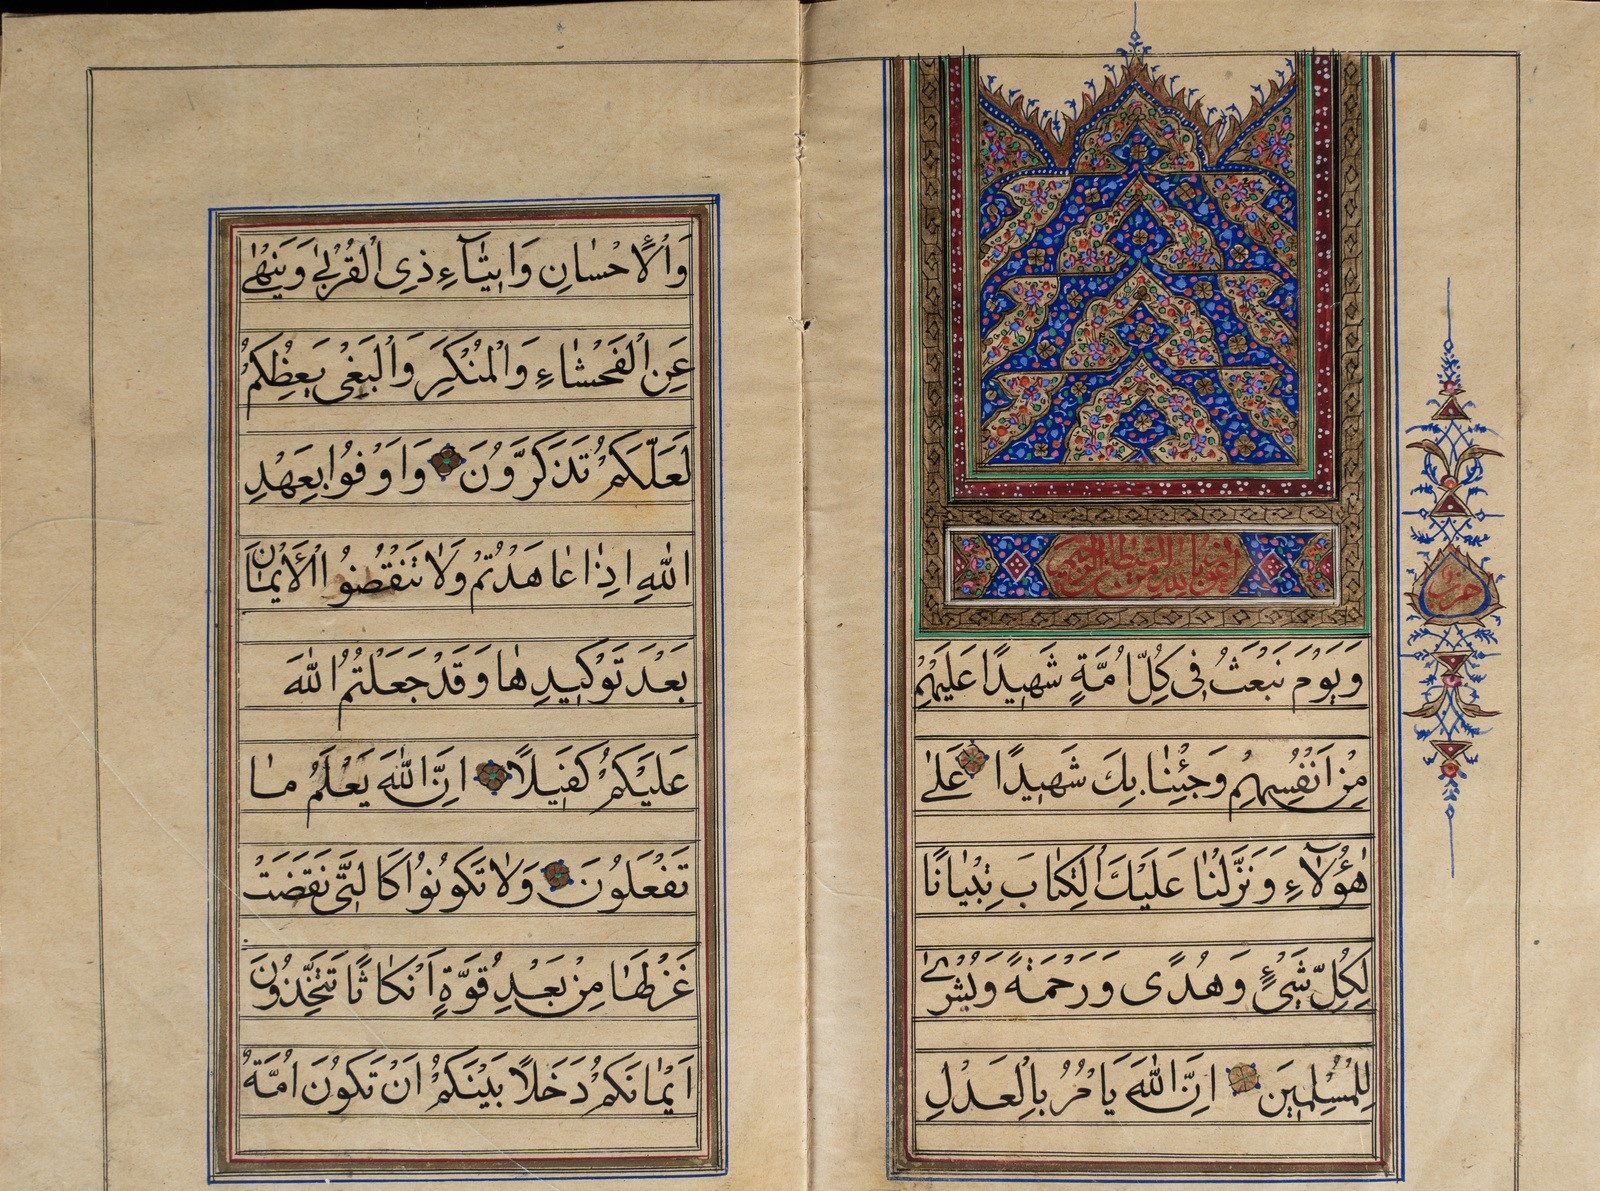 اعوذ بالله من الشیطان الرجیم
وَيَوْمَ نَبْعَثُ فِي كُلِّ اُمَّةٍ شَهِيدًا عَلَيْهِمْ
مِنْ اَنْفُسِهِمْ وَجِئْنٰا بِكَ شَهِيدًا عَلىٰ
هٰؤُلٰاءِ وَنَزَّلْنٰا عَلَيْكَ الْكِتٰابَ تِبْيٰانًا
لِكُلِّ شَيْءٍ وَهُدًى وَرَحْمَةً وَبُشْرىٰ
لِلْمُسْلِمِينَ اِنَّ اللّٰهَ يَاْمُرُ بِالْعَدْلِ
حزب
وَالْاِحْسٰانِ وَاِيتٰآءِ ذِي الْقُرْبىٰ وَيَنْهىٰ
عَنِ الْفَحْشٰاءِ وَالْمُنْكَرِ وَالْبَغْىِ يَعِظُكُمْ
لَعَلَّكُمْ تَذَكَّرُونَ وَاَوْفُوا بِعَهْدِ
اللّٰهِ اِذٰا عٰاهَدْتُمْ وَلٰا تَنْقُضُوا الْاَيْمٰانَ
بَعْدَ تَوْكِيدِهٰا وَقَدْ جَعَلْتُمُ اللّٰهَ
عَلَيْكُمْ كَفِيلًا اِنَّ اللّٰهَ يَعْلَمُ مٰا
تَفْعَلُونَ وَلٰا تَكُونُوا كَالَّتِي نَقَضَتْ
غَزْلَهٰا مِنْ بَعْدِ قُوَّةٍ اَنْكٰاثًا تَتَّخِذُونَ
اَيْمٰانَكُمْ دَخَلًا بَيْنَكُمْ اَنْ تَكُونَ اُمَّةٌ